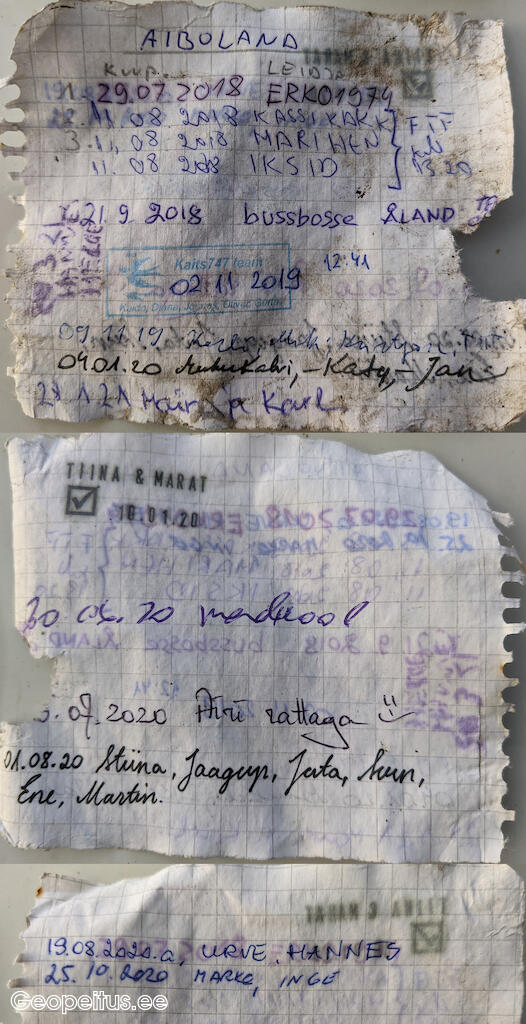 AIBOLAND
KUUP. LEIDJA
29.07.2018 ERKO1979
11.08 2018 KASSIKAKK
11.08 2018 MARIHEN
11.08 2018 IKSID
FTF
21 9 2018 bussbosse ÅLAND
Kaits747 team
02 11 2019 12:41
09.11.19
04.01.20 -Katy,- Jan
28 1 21
TIINA & MARAT
10.01.20
30 06.20
.07.2020 Airi rattaga
01.08.20 Stiina, Jaagup, Juta,
Ene, Martin.
19.08.2020.a, URVE, HANNES
25.10.2020 MARKO, INGE
Geopeitus.ee